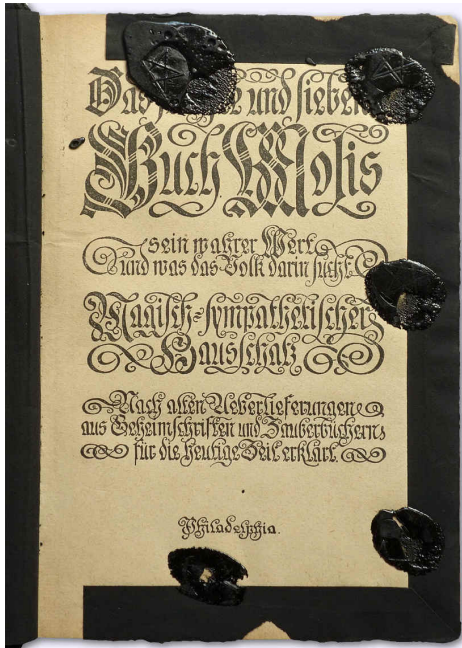 Das und sieben
Buch Mosis
sein wahrer Wert
und was das Volk darin sucht.
Magisch=sympathetischer
Hausschatz
Nach alten Ueberlieferungen
aus Geheimschriften und Zauberbüchern
für die heutige Zeit erklärt.
Philadelphia.